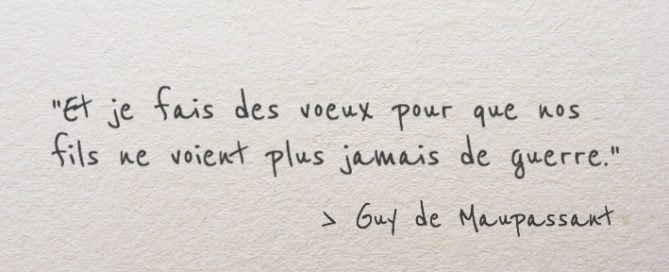 "Et je fais des voeux pour que nos
fils ne voient plus jamais de guerre."
> Guy de Maupassant